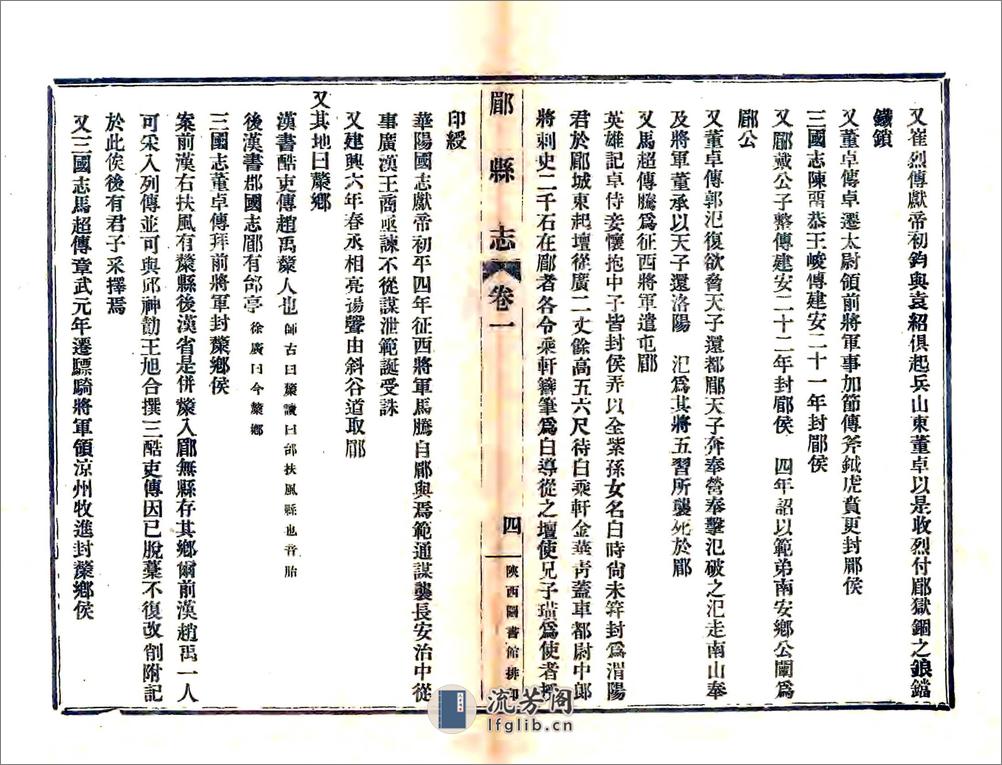 又崔烈傳獻帝初鈞與袁紹俱起兵山東董卓以是收烈付郿獄錮之鋃鐺
鐵鎖
又董卓傳卓遷太尉領前將軍事加節傳斧鉞虎賁更封郿侯
三國志陳留恭王峻傳建安二十一年封郿侯
又郿戴公子整傳建安二十二年封郿侯 四年詔以範弟南安鄉公闡爲
郿公
又董卓傳郭汜復欲脅天子還都郿天子奔奉營奉擊汜破之汜走南山奉
及將軍董承以天子還洛陽 汜爲其將五習所襲死於郿
又馬超傳騰爲征西將軍遣屯郿
英雄記卓侍妾懷抱中子皆封侯弄以金紫孫女名白時尙未笄封爲渭陽
君於郿城東起壇從廣二丈餘高五六尺待白乘軒金華靑蓋車都尉中郎
將刺史二千石在郿者各令乘軒簪筆爲白導從之壇使兄子璜爲使者授
郿縣志 卷一 四 陝西圖書館排印
印綬
華陽國志獻帝初平四年征西將軍馬騰自郿與焉範通謀襲長安治中從
事廣漢王商亟諫不從謀泄範誕受誅
又建興六年春丞相亮揚聲由斜谷道取郿
又其地曰斄鄉
漢書酷吏傳趙禹斄人也 師古曰斄讀曰邰扶風縣也音胎
後漢書郡國志郿有邰亭 徐廣曰今斄鄉
三國志董卓傳拜前將軍封斄鄉侯
案前漢右扶風有斄縣後漢省是併斄入郿無縣存其鄉爾前漢趙禹一人
可采入列傳並可與郅神勣王旭合撰三酷吏傳因已脫藁不復改削附記
於此俟後有君子采擇焉
又三國志馬超傳章武元年遷驃騎將軍領涼州牧進封斄鄉侯
流芳阁
lfglib.cn